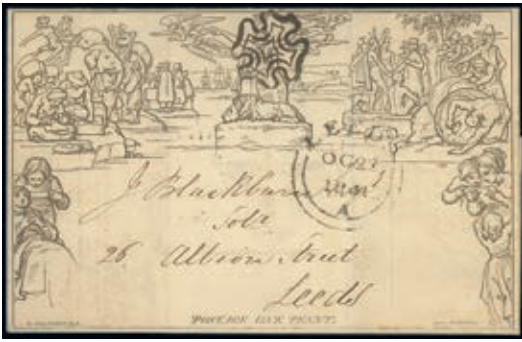 LEEDS
OC 27
1841
A
J Blackburn
Solr
26 Albion Street
Leeds
POSTAGE ONE PENNY.